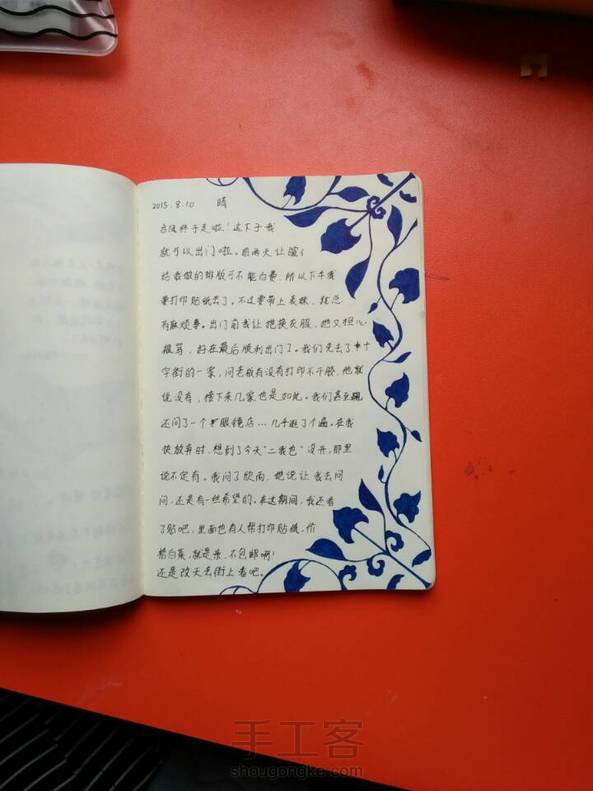 2015.8.10 晴
台风终于走啦！这下子我
就可以出门啦。前两天让瑄
给我做的排版可不能白费，所以下午我
要打印贴纸去了。不过要带上表妹，就总
有麻烦事。出门前我让她换衣服，她又担心
挨骂，好在最后顺利出门了。我们先去了十
字街的一家，问老板有没有打印不干胶，他就
说没有，接下来几家也是如此。我们甚至跑
还问了一个眼镜店…几乎逛了个遍。在我
快放弃时，想到了今天“二我也”没开，那里
说不定有。我问了欣南，她说让我去问
问，还是有一丝希望的。在这期间，我还看
了贴吧，里面也有人帮打印贴纸，价
格白菜，就是亲，不包邮啊！
还是改天去街上看吧。
手工客
shougongke.com